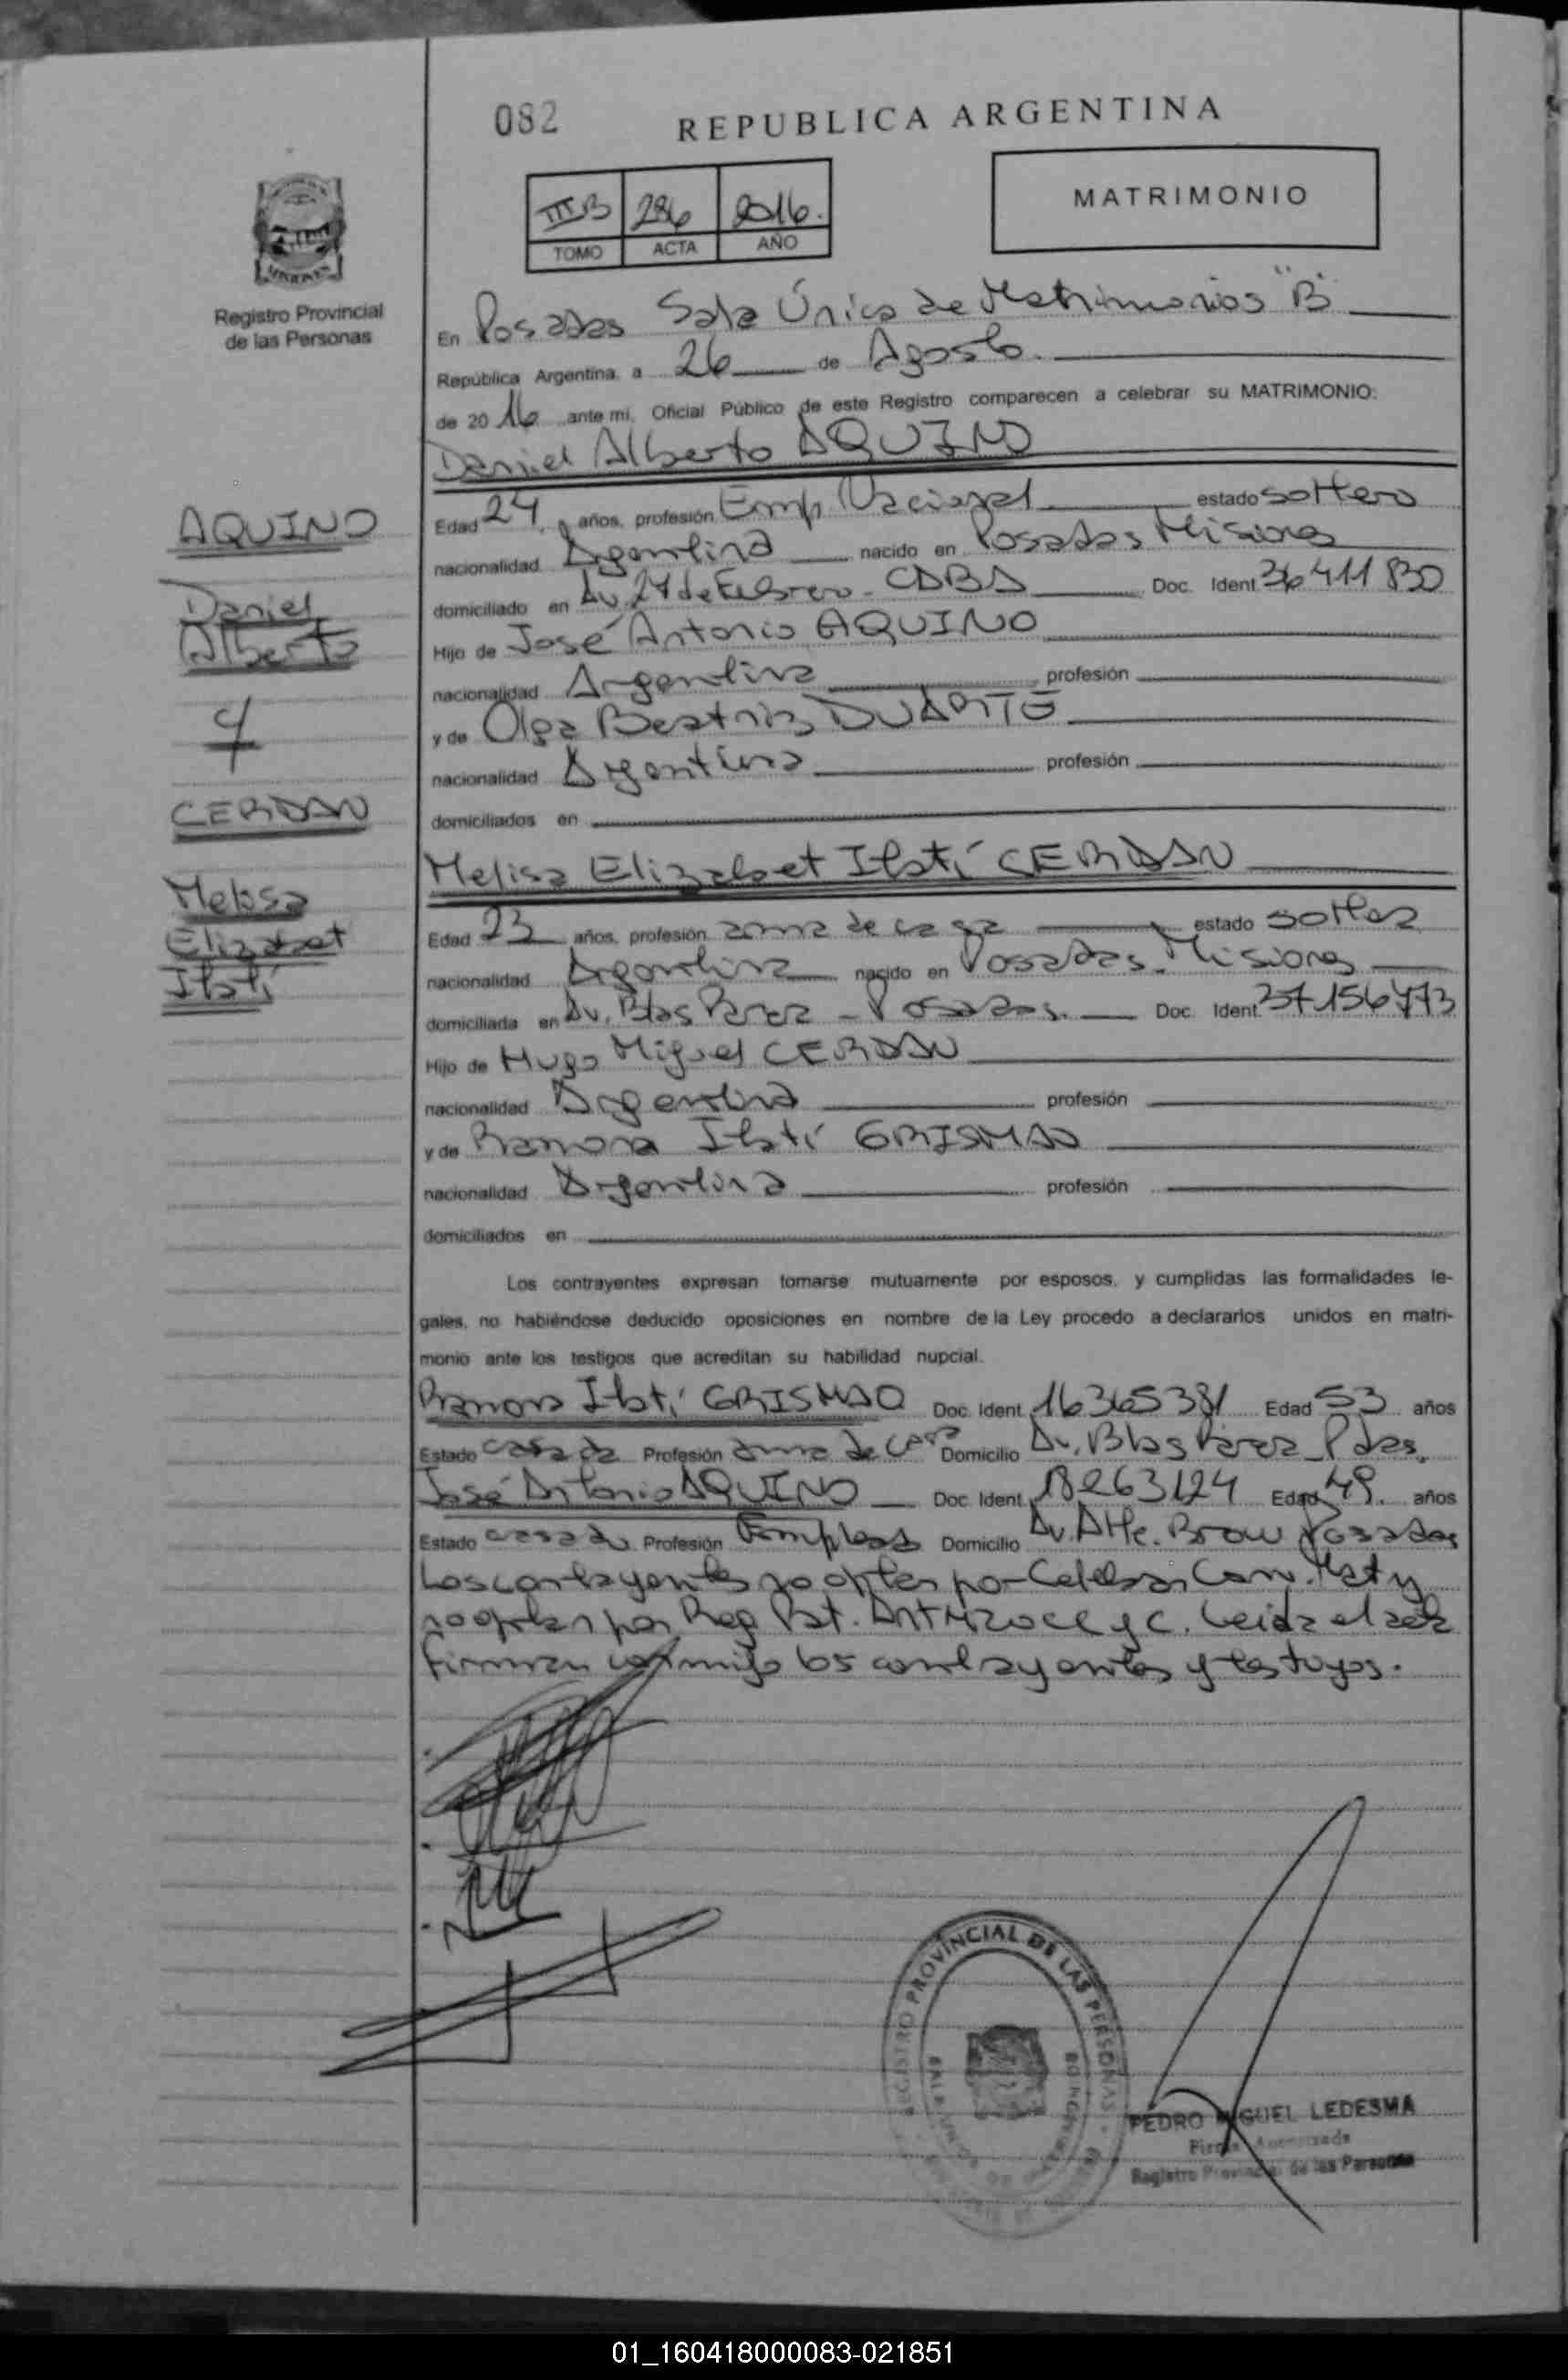 082
REPUBLICA ARGENTINA
III B 286 2016.
TOMO ACTA AÑO
MATRIMONIO
MISIONES
Registro Provincial
de las Personas
En Posadas Sala Única de Matrimonios "B"
República Argentina, a 26 de Agosto.
de 2016 ante mi, Oficial Público de este Registro comparecen a celebrar su MATRIMONIO:
Daniel Alberto AQUINO
AQUINO
Daniel
Alberto
Edad 24, años, profesión Emp. Nacional estado soltero
nacionalidad Argentina nacido en Posadas Misiones
domiciliado en Av. 27 de Febrero - CABA Doc. Ident. 36411830
Hijo de José Antonio AQUINO
nacionalidad Argentina profesión
y de Olga Beatriz DUARTE
nacionalidad Argentina profesión
domiciliados en
y
CERDAN
Melisa
Elizabet
Itatí
Melisa Elizabet Itatí CERDAN
Edad 23 años, profesión ama de casa estado soltera
nacionalidad Argentina nacido en Posadas - Misiones
domiciliada en Av. Blas Parera - Posadas. Doc. Ident. 37156773
Hijo de Hugo Miguel CERDAN
nacionalidad Argentina profesión
y de Ramona Itatí GRISMAO
nacionalidad Argentina profesión
domiciliados en
Los contrayentes expresan tomarse mutuamente por esposos, y cumplidas las formalidades le-
gales, no habiéndose deducido oposiciones en nombre de la Ley procedo a declararlos unidos en matri-
monio ante los testigos que acreditan su habilidad nupcial.
Ramona Itatí GRISMAO Doc. Ident. 16365381 Edad 53 años
Estado casada Profesión ama de casa Domicilio Av. Blas Parera Pdas.
José Antonio AQUINO Doc. Ident. 18263124 Edad 49. años
Estado casado Profesión Empleado Domicilio Av. Alte. Brow Posadas
Los contrayentes no optan por Celebrar Conv. Mat y
no optan por Reg Pat. Leida el acta
firman conmigo los contrayentes y testigos.
REGISTRO PROVINCIAL DE LAS PERSONAS
PEDRO MIGUEL LEDESMA
Firma Autorizada
Registro Provincial de las Personas
01_160418000083-021851